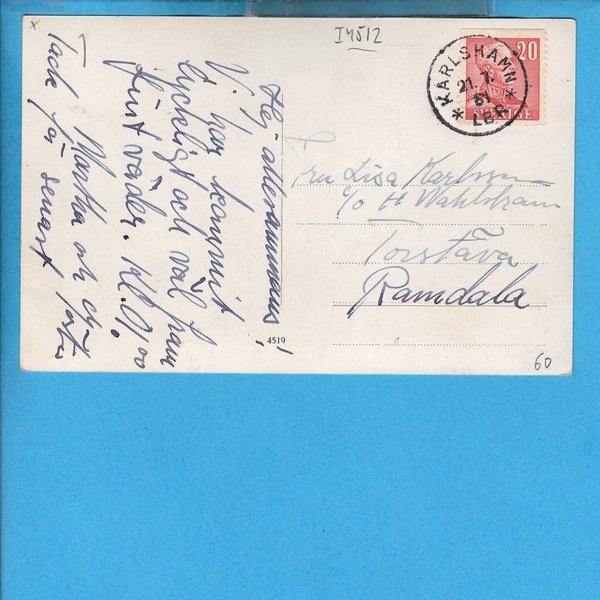 x
I4512
20
KARLSHAMN
21.7.
51
* LBR *
SVERIGE
Hej allesammans!
Vi har kommit
lyckligt och väl fram
fint väder. Kl. 9,00
Martha och
Tack för senast
Fru Lisa Karlsson
c/o H Wahlstram
Torstäva
Ramdala
4519
60